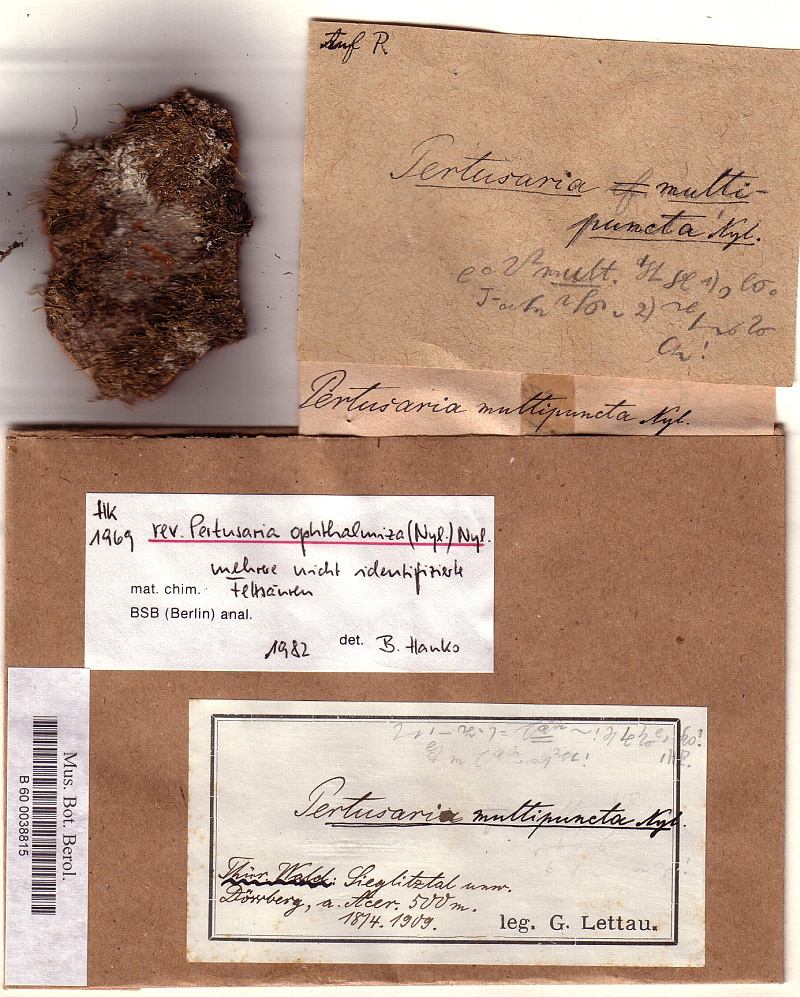 Auf R.
Pertusaria multi-
puncta Nyl.
mult.
Pertusaria multipuncta Nyl.
HK
1969
rev. Pertusaria ophthalmiza (Nyl.) Nyl.
mehrere nicht identifizierte
mat. chim. Fettsäuren
BSB (Berlin) anal.
1982 det. B. Hanko
Mus. Bot. Berol.
B 60 0038815
Pertusaria multipuncta Nyl.
Thür. Wald: Sieglitztal unw.
Dörrberg, a. Acer. 500 m.
1909.
leg. G. Lettau.